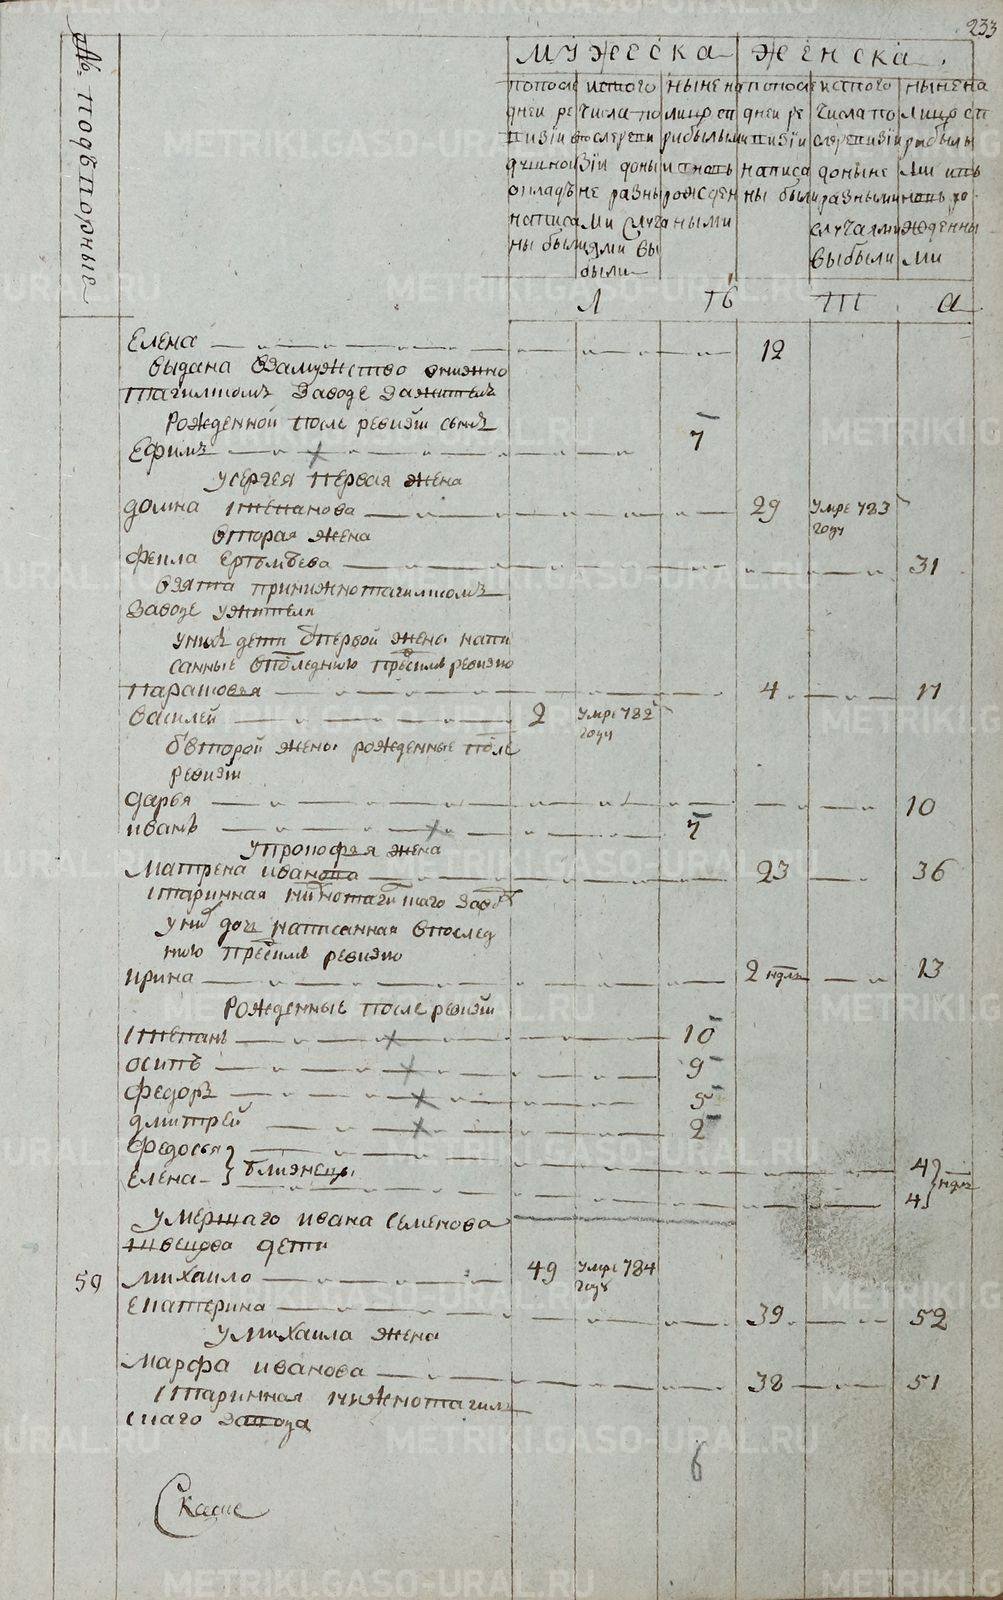 233
№ подворные
мужеска
женска
по последней ревизии в душной оклад написаны были
ис того числа по сле ревизии доныне разными случаями выбыли
ныне на лицо с прибылыми и вновь рожденными
по последней ревизии написаны были
ис того числа по сле ревизии доныне разными случаями выбыли
ныне на лицо с прибылыми и вновь рожденными
Л
Елена 12
выдана взамужство в нижно
тагилском заводе за жителя
Рожденной после ревизии сынъ
Ефимъ 7
у сергея первая жена
домна степанова 29 умре 783 году
вторая жена
31
взята при нижнотагилском
заводе у жителя
у них дети от первой жены напи
санные в последнюю пред сим ревизию
парасковья 4 17
василей 2 умре 782 году
от второй жены рожденные после
ревизии
дарья 10
иванъ 7
у прокофья жена
матрена иванова 23 36
старинная нижнотагилского завода
у них дочь написанная в послед
нюю пред сим ревизию
ирина 2 ндль 13
Рожденные после ревизии
степанъ 10
осипъ 9
федоръ 5
дмитрей 2
федосья } близнецы 4 } ндль
елена 4
умершаго ивана семенова
швецова дети
59 михаило 49 умре 784 году
екатерина 39 52
у михаила жена
марфа иванова 38 51
старинная нижнотагил
скаго завода
6
METRIKI.GASO-URAL.RU